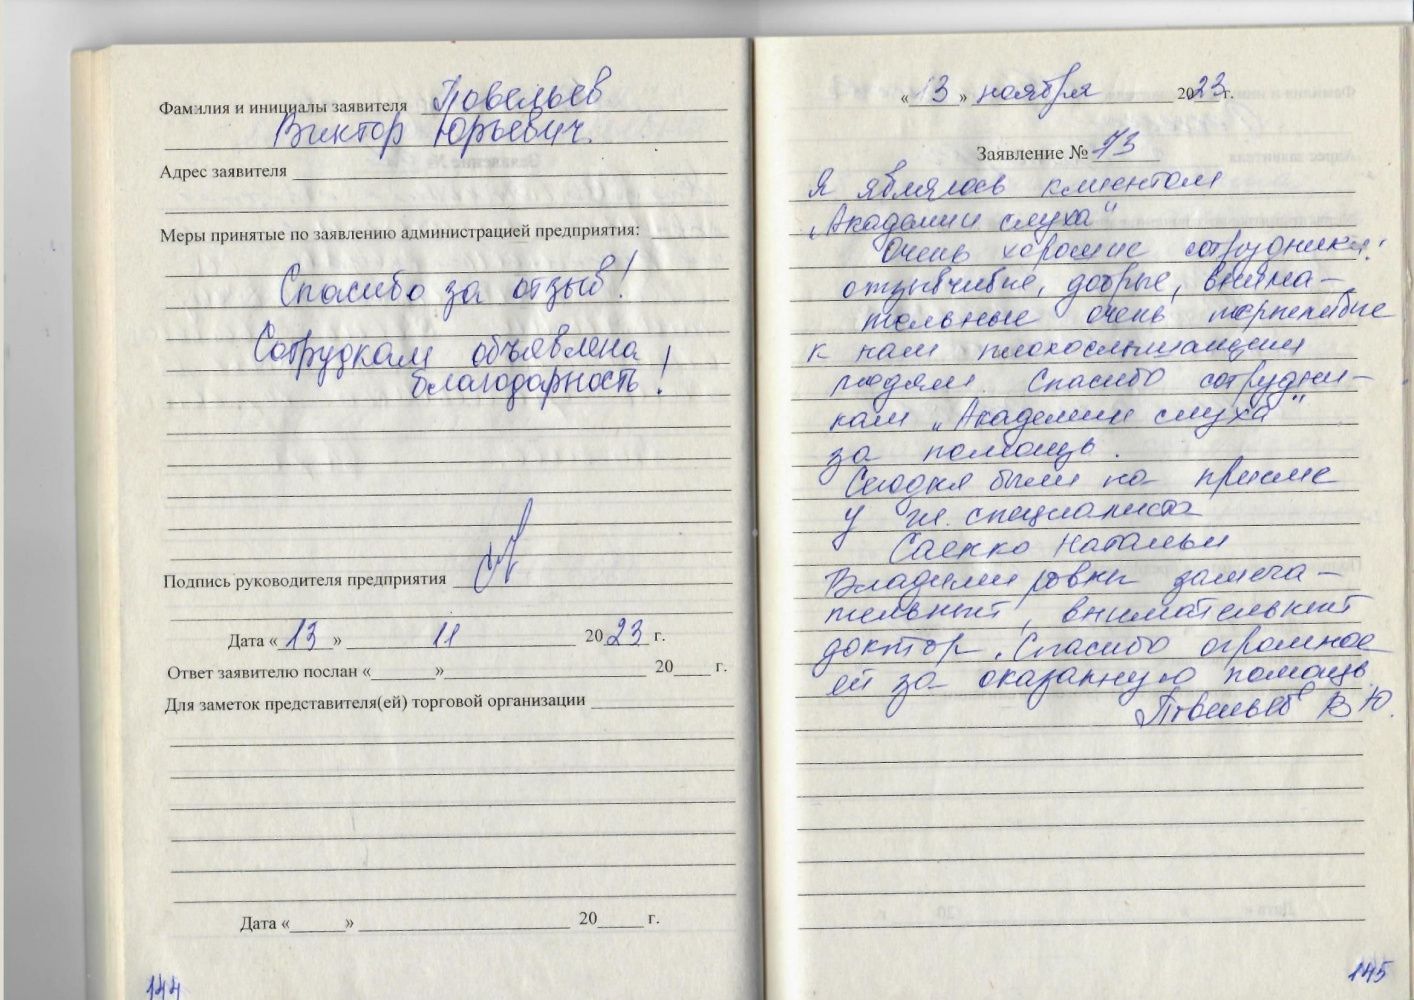 Фамилия и инициалы заявителя Повельев
Виктор Юрьевич.
Адрес заявителя
Меры принятые по заявлению администрацией предприятия:
Спасибо за отзыв!
Сотрудкам объявлена
благодарность!
Подпись руководителя предприятия
Дата «13» 11 2023 г.
Ответ заявителю послан «______» 20____ г.
Для заметок представителя(ей) торговой организации
Дата «______» 20_____ г.
144
«13» ноября 2023 г.
Заявление № 73
Я являюсь клиентом
„Академии слуха"
Очень хорошие сотрудники:
отзывчивые, добрые, внима-
тельные очень терпеливые
к нам плохослышащим
людям. Спасибо сотрудни-
кам „Академии слуха"
за помощь.
Сегодня были на приеме
у гл. специалиста
Саенко Натальи
Владимировны замеча-
тельный, внимательный
доктор. Спасибо огромное
ей за оказанную помощь.
Повельев В Ю.
145